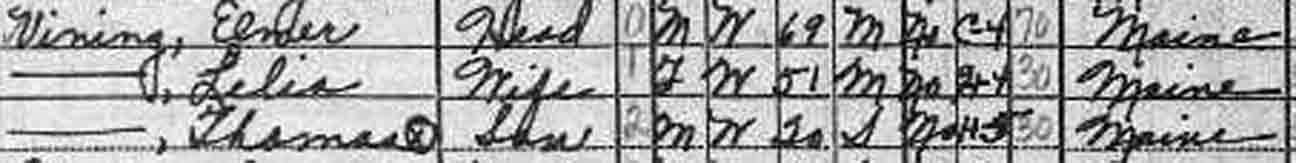 Vining, Elmer Head 0 M W 69 M No C-4 70 Maine
——, Lelia Wife 1 F W 51 M No 30 Maine
——, Thomas ⓧ Son 2 M W 20 S No H-3 30 Maine